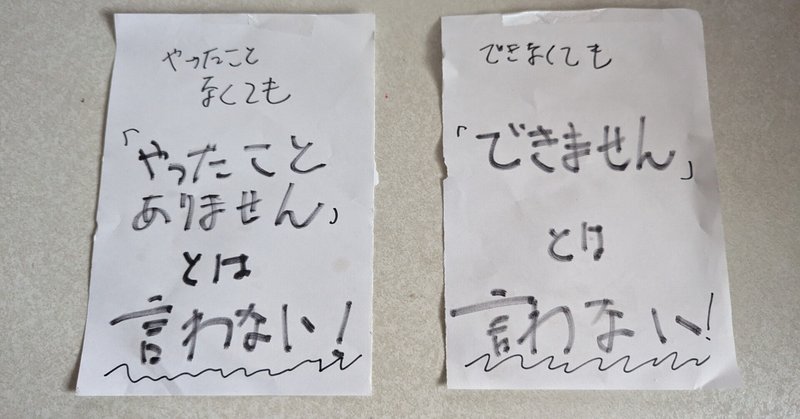 やったこと
なくても
「やったこと
ありません」
とは
言わない!
できなくても
「できません」
とは
言わない!